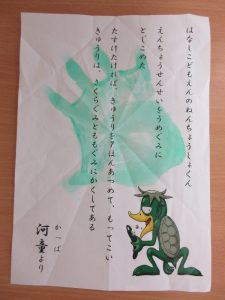 はなしこどもえんのねんちょうしょくん
えんちょうせんせいをうめぐみに
とじこめた
たすけたければ、きゅうりを7ほんあつめて、もってこい
きゅうりは、さくらぐみとももぐみにかくしてある
かっぱ
河童より